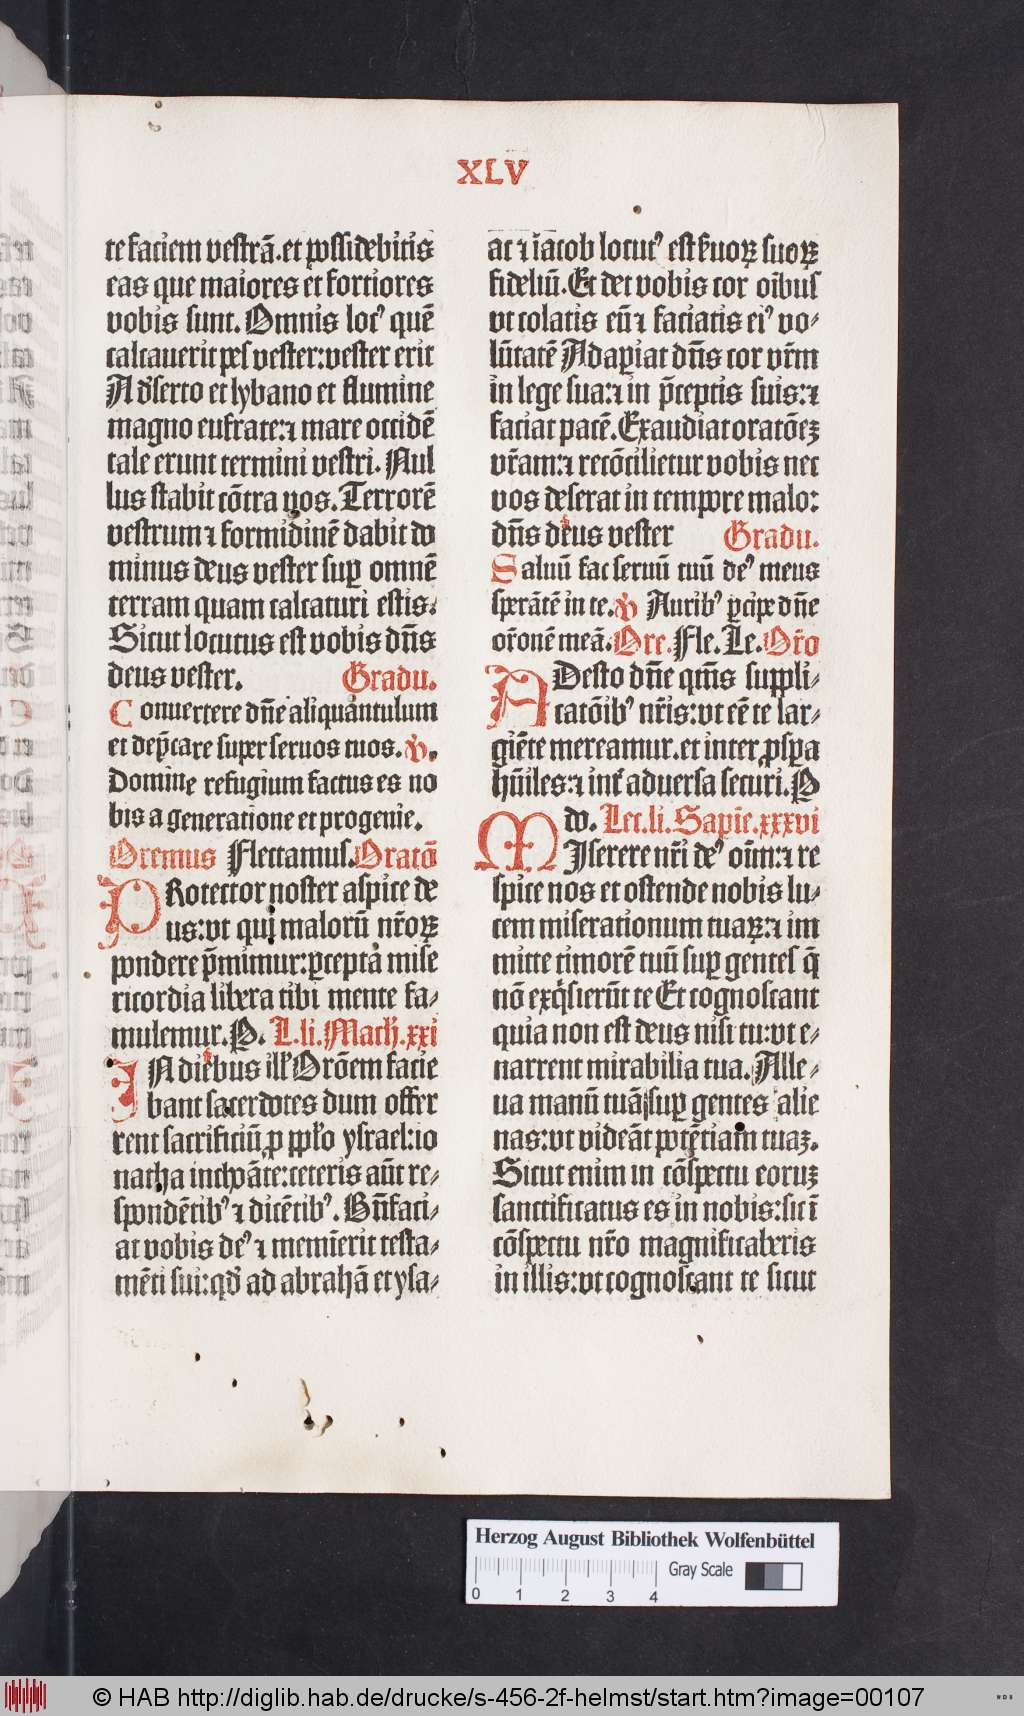 XLV
te faciem vestrā.et possidebitis
eas que maiores et fortiores
vobis sunt. Omnis locꝰ quē
calcauerit pes vester:vester erit
A dꝰserto et lybano et flumine
magno eufrate:⁊ mare occidē
tale erunt termini vestri. Nul
lus stabit cōtra vos. Terrorē
vestrum ⁊ formidinē dabit do
minus deus vester suꝑ omnē
terram quam calcaturi estis.
Sicut locutus est vobis dn̄s
deus vester. Gradu.
Conuertere dn̄e aliquantulum
et dep̄care super seruos tuos. ℣.
Domine refugium factus es no
bis a generatione et progenie.
Oremus Flectamus. Oratō
PRotector noster aspice de
us:vt qui malorū nr̄oꝝ
pondere p̄mimur:ꝑcepta mise
ricordia libera tibi mente fa-
mulemur. P. L.li. Mach̄.xxi
IN diebus ill̄ Orōem facie
bant sacerdotes dum offer
rent sacrificiū ꝓ pp̄lo ysrael:io
natha inchoāte:ceteris aūt re-
spondētibꝰ ⁊ dicētibꝰ. Bn̄faci-
at vobis deꝰ ⁊ memīerit testa-
mēti sui:qd̄ ad abrahā et ysa-
ac ⁊ iacob locutꝰ est s̄uoꝝ suoꝝ
fideliū. Et det vobis cor oībus
vt colatis eū ⁊ faciatis eiꝰ vo-
lūtatē Adaꝑiat dn̄s cor vr̄m
in lege sua:⁊ in p̄ceptis suis:⁊
faciat pacē. Exaudiat oratōeꝫ
vr̄am:⁊ recōcilietur vobis nec
vos deserat in tempore malo:
dn̄s deus vester Gradu.
Saluū fac seruū tuū deꝰ meus
sperātē in te. ℣ Auribꝰ ꝑcipe dn̄e
or̄onē meā. Ore. Fle. Le. Or̄o
ADesto dn̄e qm̄s suppli-
catōibꝰ nr̄is:vt eē te lar-
giēte mereamur.et inter ꝓsꝑa
hūiles:⁊ inꞇ̄ aduersa securi. P
do. Lec.li. Sapīe.xxxvi
MIserere nr̄i deꝰ oīm:⁊ re
spice nos et ostende nobis lu-
cem miserationum tuaꝝ:⁊ im
mitte timorē tuū suꝑ gentes q̄
nō exq̄sierūt te Et cognoscant
quia non est deus nisi tu:vt e-
narrent mirabilia tua. Alle-
ua manū tuā suꝑ gentes alie
nas:vt videāt potētiam tuaꝫ.
Sicut enim in cōspectu eoruꝫ
sanctificatus es in nobis:sic ī
cōspectu nr̄o magnificaberis
in illis:vt cognoscant te sicut
Herzog August Bibliothek Wolfenbüttel
Gray Scale
0 1 2 3 4
© HAB http://diglib.hab.de/drucke/s-456-2f-helmst/start.htm?image=00107